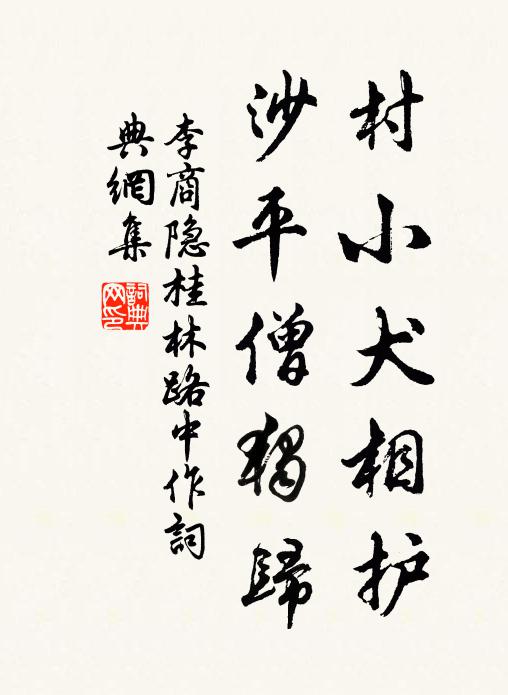 村小犬相护
沙平僧独歸
李商隐桂林路中作詞
典網集
詞典网印